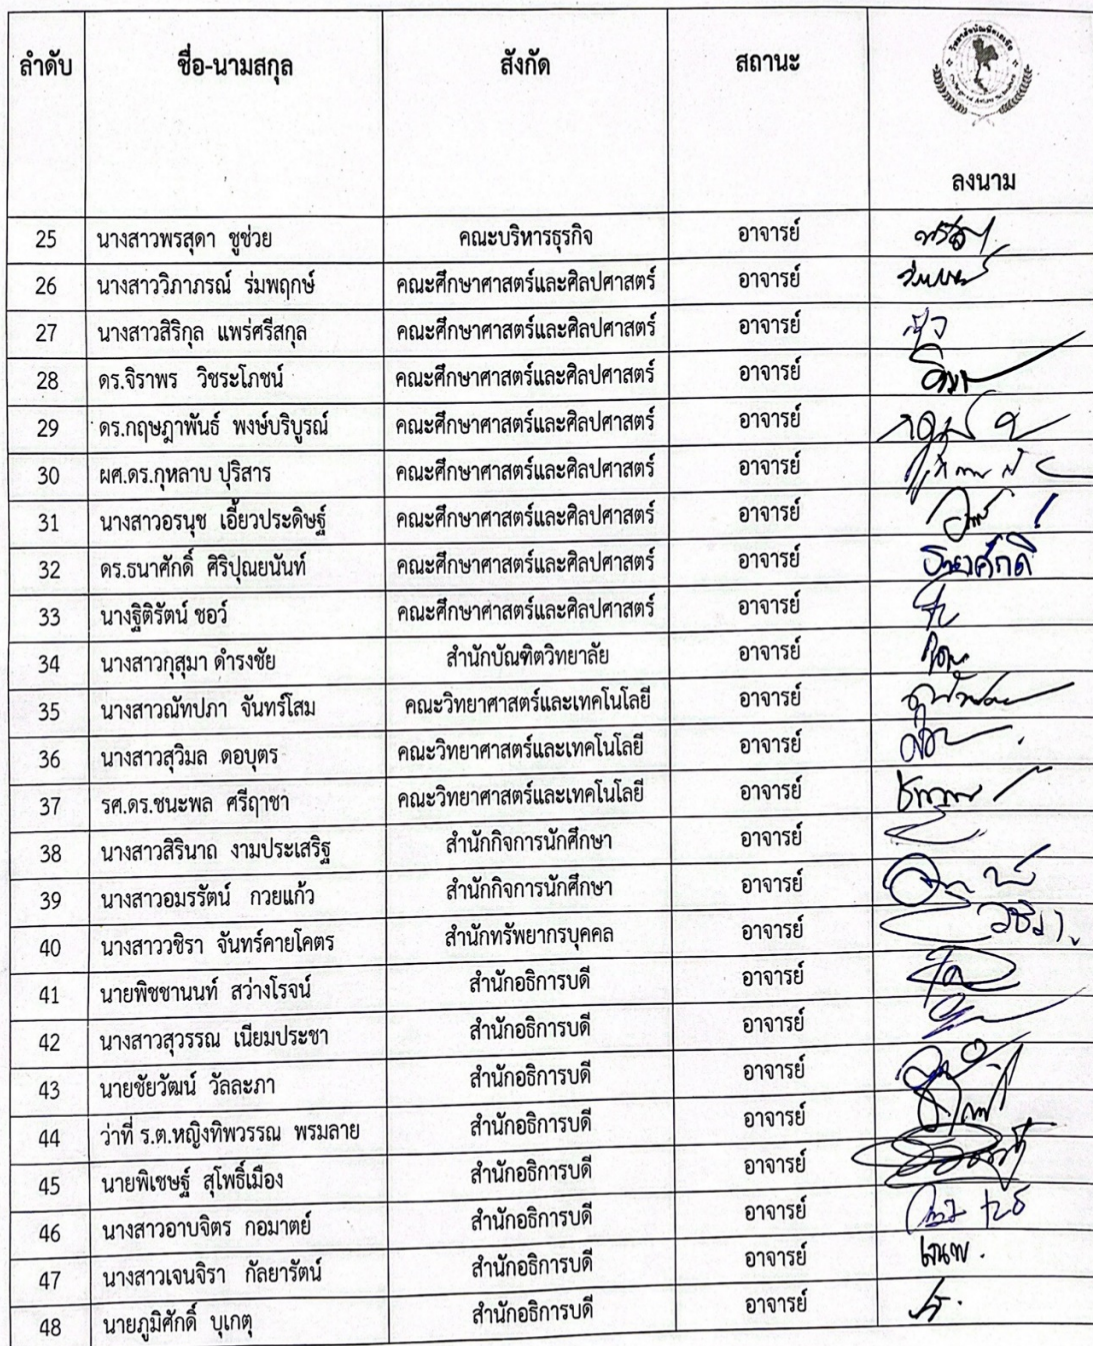 ลำดับ ชื่อ-นามสกุล สังกัด สถานะ ลงนาม
25 นางสาวพรสุดา ชูช่วย คณะบริหารธุรกิจ อาจารย์
26 นางสาววิภาภรณ์ ร่มพฤกษ์ คณะศึกษาศาสตร์และศิลปศาสตร์ อาจารย์
27 นางสาวสิริกุล แพร่ศรีสกุล คณะศึกษาศาสตร์และศิลปศาสตร์ อาจารย์
28 ดร.จิราพร วิชระโภชน์ คณะศึกษาศาสตร์และศิลปศาสตร์ อาจารย์
29 ดร.กฤษฎาพันธ์ พงษ์บริบูรณ์ คณะศึกษาศาสตร์และศิลปศาสตร์ อาจารย์
30 ผศ.ดร.กุหลาบ ปุริสาร คณะศึกษาศาสตร์และศิลปศาสตร์ อาจารย์
31 นางสาวอรนุช เอี้ยวประดิษฐ์ คณะศึกษาศาสตร์และศิลปศาสตร์ อาจารย์
32 ดร.ธนาศักดิ์ ศิริปุณยนันท์ คณะศึกษาศาสตร์และศิลปศาสตร์ อาจารย์
33 นางฐิติรัตน์ ชอว์ คณะศึกษาศาสตร์และศิลปศาสตร์ อาจารย์
34 นางสาวกุสุมา ดำรงชัย สำนักบัณฑิตวิทยาลัย อาจารย์
35 นางสาวณัทปภา จันทร์โสม คณะวิทยาศาสตร์และเทคโนโลยี อาจารย์
36 นางสาวสุวิมล ดอบุตร คณะวิทยาศาสตร์และเทคโนโลยี อาจารย์
37 รศ.ดร.ชนะพล ศรีฤาชา คณะวิทยาศาสตร์และเทคโนโลยี อาจารย์
38 นางสาวสิรินาถ งามประเสริฐ สำนักกิจการนักศึกษา อาจารย์
39 นางสาวอมรรัตน์ กวยแก้ว สำนักกิจการนักศึกษา อาจารย์
40 นางสาววชิรา จันทร์คายโคตร สำนักทรัพยากรบุคคล อาจารย์
41 นายพิชชานนท์ สว่างโรจน์ สำนักอธิการบดี อาจารย์
42 นางสาวสุวรรณ เนียมประชา สำนักอธิการบดี อาจารย์
43 นายชัยวัฒน์ วัลละภา สำนักอธิการบดี อาจารย์
44 ว่าที่ ร.ต.หญิงทิพวรรณ พรมลาย สำนักอธิการบดี อาจารย์
45 นายพิเชษฐ์ สุโพธิ์เมือง สำนักอธิการบดี อาจารย์
46 นางสาวอาบจิตร กอมาตย์ สำนักอธิการบดี อาจารย์
47 นางสาวเจนจิรา กัลยารัตน์ สำนักอธิการบดี อาจารย์
48 นายภูมิศักดิ์ บุเกตุ สำนักอธิการบดี อาจารย์